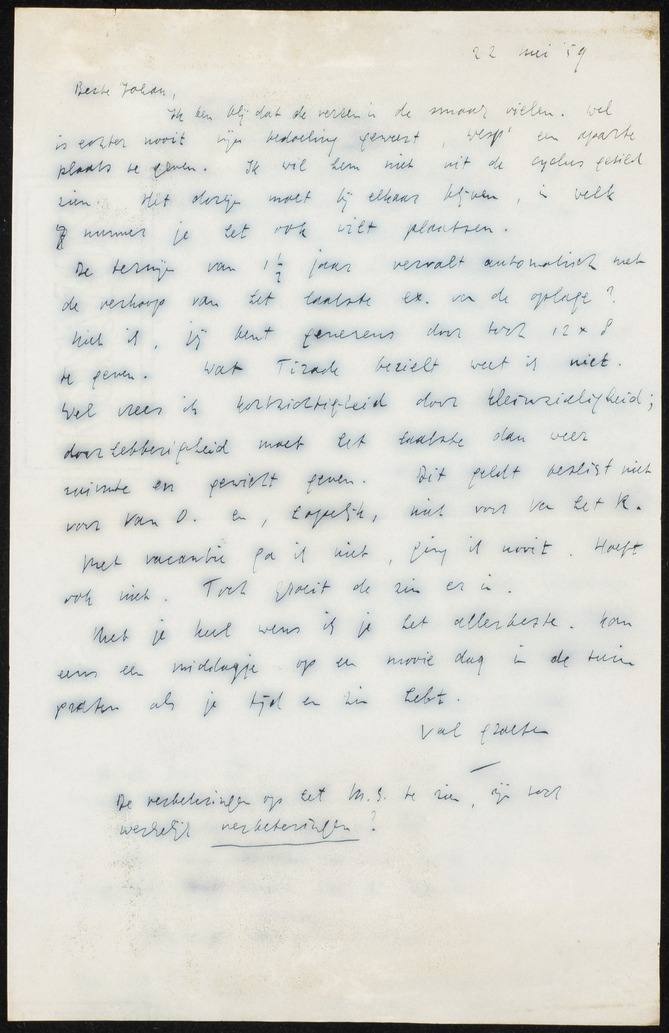 22 mei '59
Beste Johan,
Ik ben blij dat de verzen in de smaak vielen. Wel
is echter nooit mijn bedoeling geweest, 'wesp' een aparte
plaats te geven. Ik wil hem niet uit de cyclus getild
zien. Het dozijn moet bij elkaar blijven, in welk
nummer je het ook wilt plaatsen.
De termijn van 1½ jaar vervalt automatisch met
de verkoop van het laatste ex. van de oplage?
Vind ik, jij bent genereus door toch 12 x 8
te geven. Wat Tirade bezielt weet ik niet.
Wel vrees ik kortzichtigheid door kleinzieligheid;
door letterigheid moet het laatste dan weer
ruimte en gewicht geven. Dit geldt beslist niet
voor Van O. en, hopelijk, niet voor Van het R.
Met vacantie ga ik niet, ging ik nooit. Hoeft
ook niet. Toch groeit de zin er in.
Met je keel wens ik je het allerbeste. Kom
eens een middagje op een mooie dag in de tuin
praten als je tijd en zin hebt.
Veel groeten
De verbeteringen op het M.S. te zien, zijn toch
werkelijk verbeteringen?